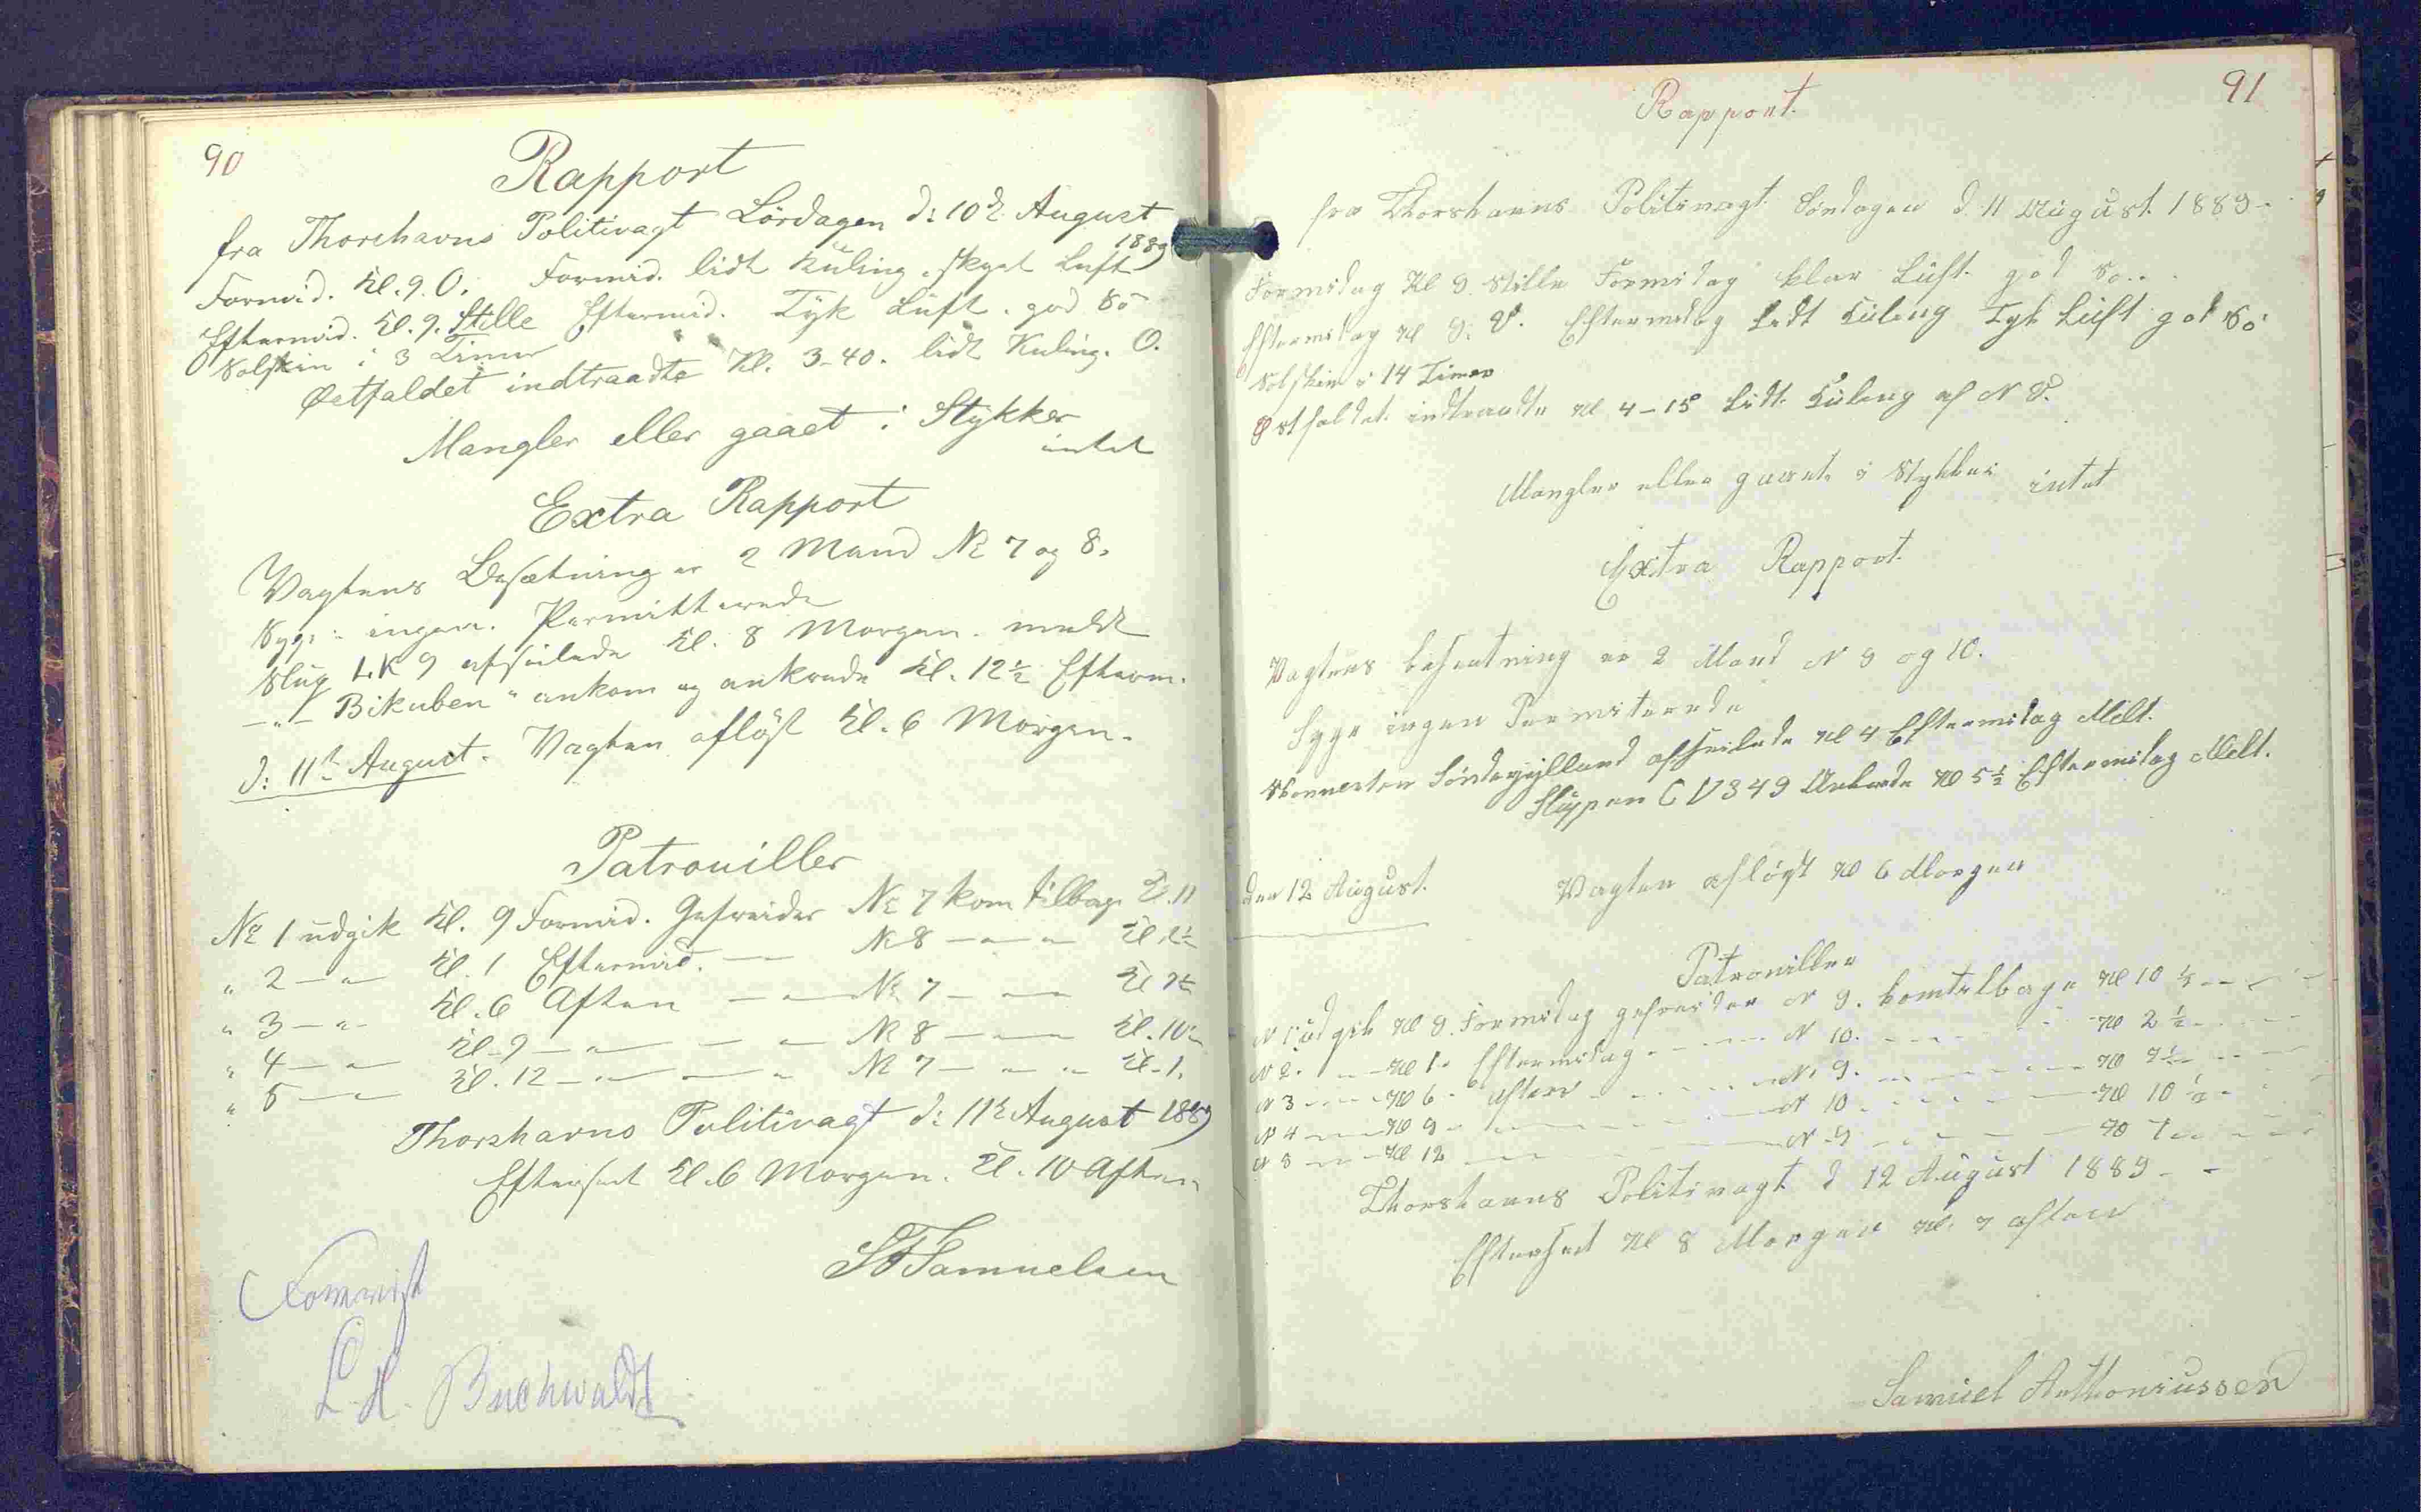 90
Rapport
fra Thorshavns Politivagt Lördagen d: 10de August
1889
Formid. Kl. 9. O. Formid. lidt Kuling, skyet Luft
Eftermid. Kl. 9. Stille Eftermid. Tyk Luft. god Sö
Solskin i 3 Timer
Østfaldet indtraadte Kl. 3-40. lidt Kuling. O.
Mangler eller gaaet i Stykker
intet
Extra Rapport
Vagtens Besætning er 2 Mand No 7 og 8.
Syge: ingen. Permitterede
Slup LK 9 afseilede Kl. 8 Morgen. meldt
—"— Bikuben" ankom og ankrede Kl. 12½ Efterm.
d: 11te August. Vagten aflöst Kl. 6 Morgen.
Patrouiller
No 1 udgik Kl. 9 Formid. Gefreider No 7 kom tilbage Kl. 11
" 2 —"— Kl. 1 Eftermid. — No 8 —"—"— Kl. 2½
" 3 —"— Kl. 6 Aften —"— No 7 —"—"— Kl 7½
" 4 —"— Kl. 9 —"— —"— No 8 —"—"— Kl. 10½
" 5 —"— Kl. 12 —"— —"— No 7 —"—"— Kl. 1.
Thorshavns Politivagt d: 11te August 1889
Efterset Kl. 6 Morgen. Kl. 10 Aften
SFSamuelsen
L. H. Buchwaldt
91
Rapport.
fra Thorshavns Politivagt Söndagen d. 11 August 1889-
Formidag Kl 9 Stille Formidag klar Luft god Sö..
Eftermidag Kl 9. V. Eftermidag Lidt Kuling Tyk Luft god Sö
Solskin i 14 Timer
Østfaldet indtraadte Kl 4-15 Lidt Kuling af N V.
Mangler eller gaaet i Stykker intet
Extra Rapport.
Vagtens besætning er 2 Mand N 9 og 10.
Syge ingen Permiterede
Skonnerten Sönderjylland afseilede Kl 4 Eftermidag Melt.
Sluppen C V 349 Ankrede Kl 5½ Eftermidag Melt.
den 12 August. Vagten aflöst Kl 6 Morgen
Patrouiller
N 1 udgik Kl 9. Formidag gefreider N 9. komtilbage Kl 10 ½
N 2. — Kl 1. Eftermidag — N 10. — Kl 2½
N 3 — Kl 6. aften — N. 9. — Kl 7½
N 4 — Kl 9 — N 10 — Kl 10 ½
N 5 — Kl 12 — N 9 — Kl 1
Thorshavns Politivagt d 12 August 1889 - -
Efterset Kl 8 Morgen Kl. 7 aften
Samuel Anthoniussen